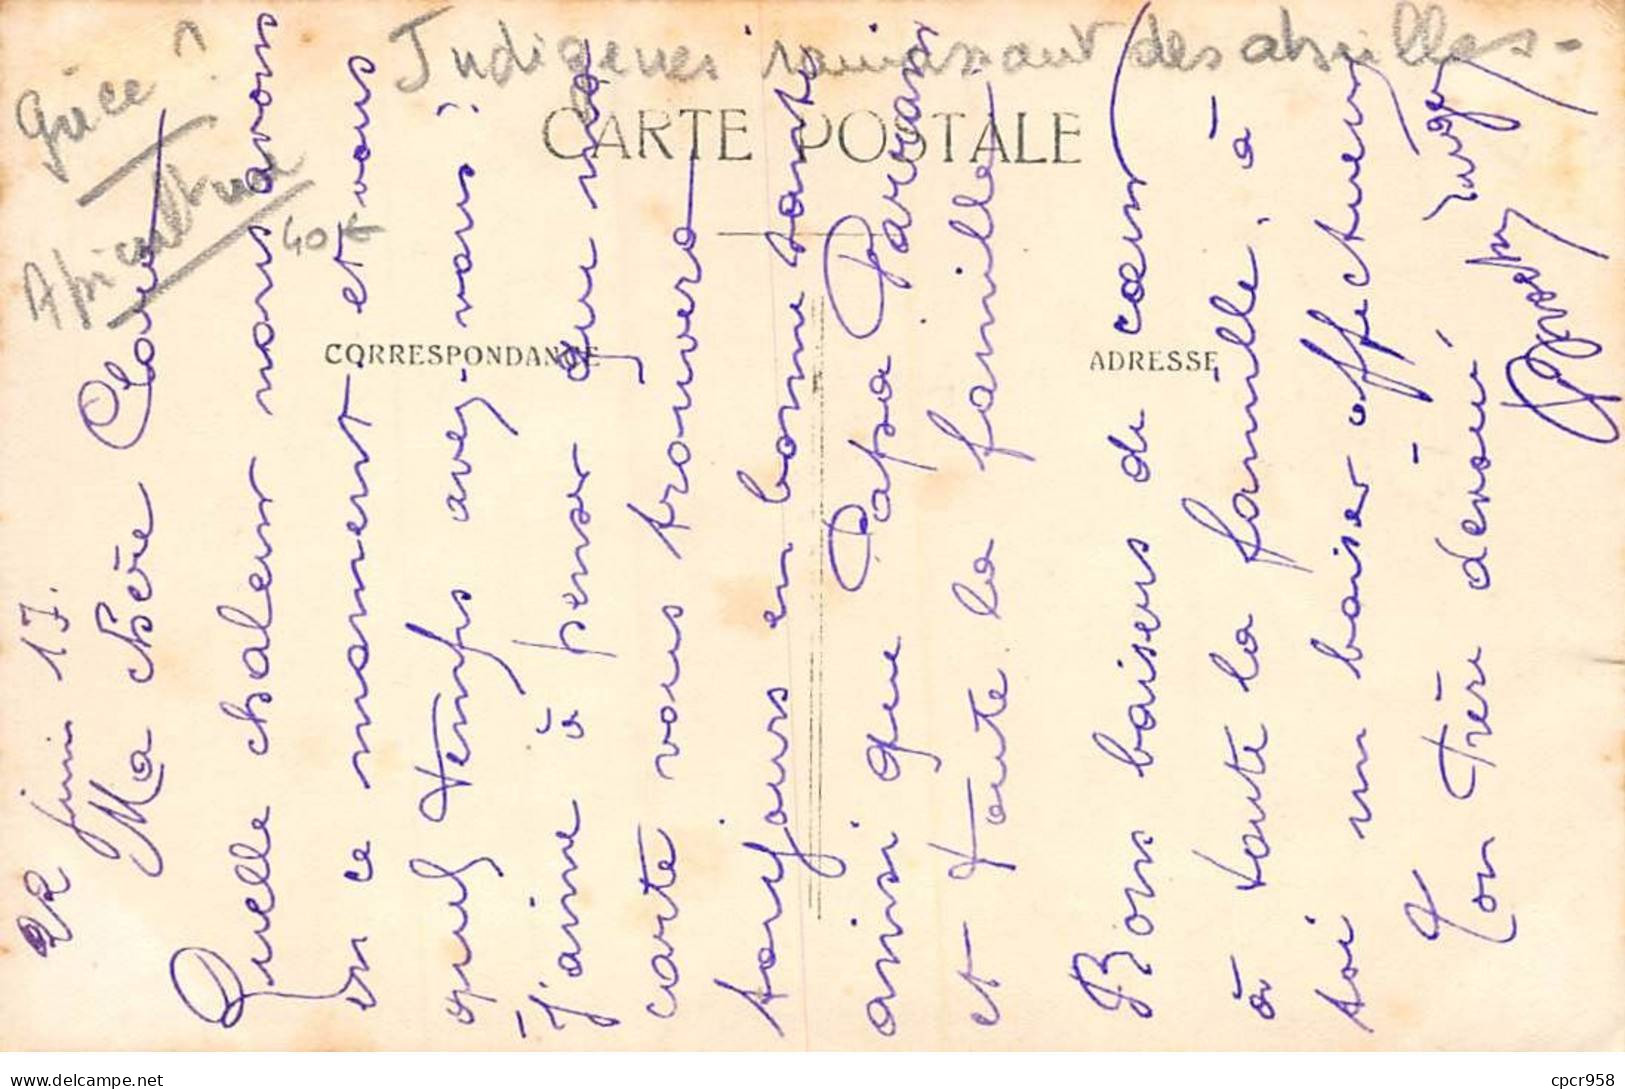 Indigènes ramassant des abeilles-
Grèce ?
Apiculture
40 €
CARTE POSTALE
CORRESPONDANCE
ADRESSE
22 juin 17.
Ma chère Claire
Quelle chaleur nous avons
en ce moment et vous
quel temps avez-vous !!
J'aime à penser que ma
carte vous trouvera
toujours en bonne santé
ainsi que Papa
et toute la famille
Bons baisers de cœur
à toute la famille, à
toi un baiser affectueux
Ton Père dévoué,
cpcr958